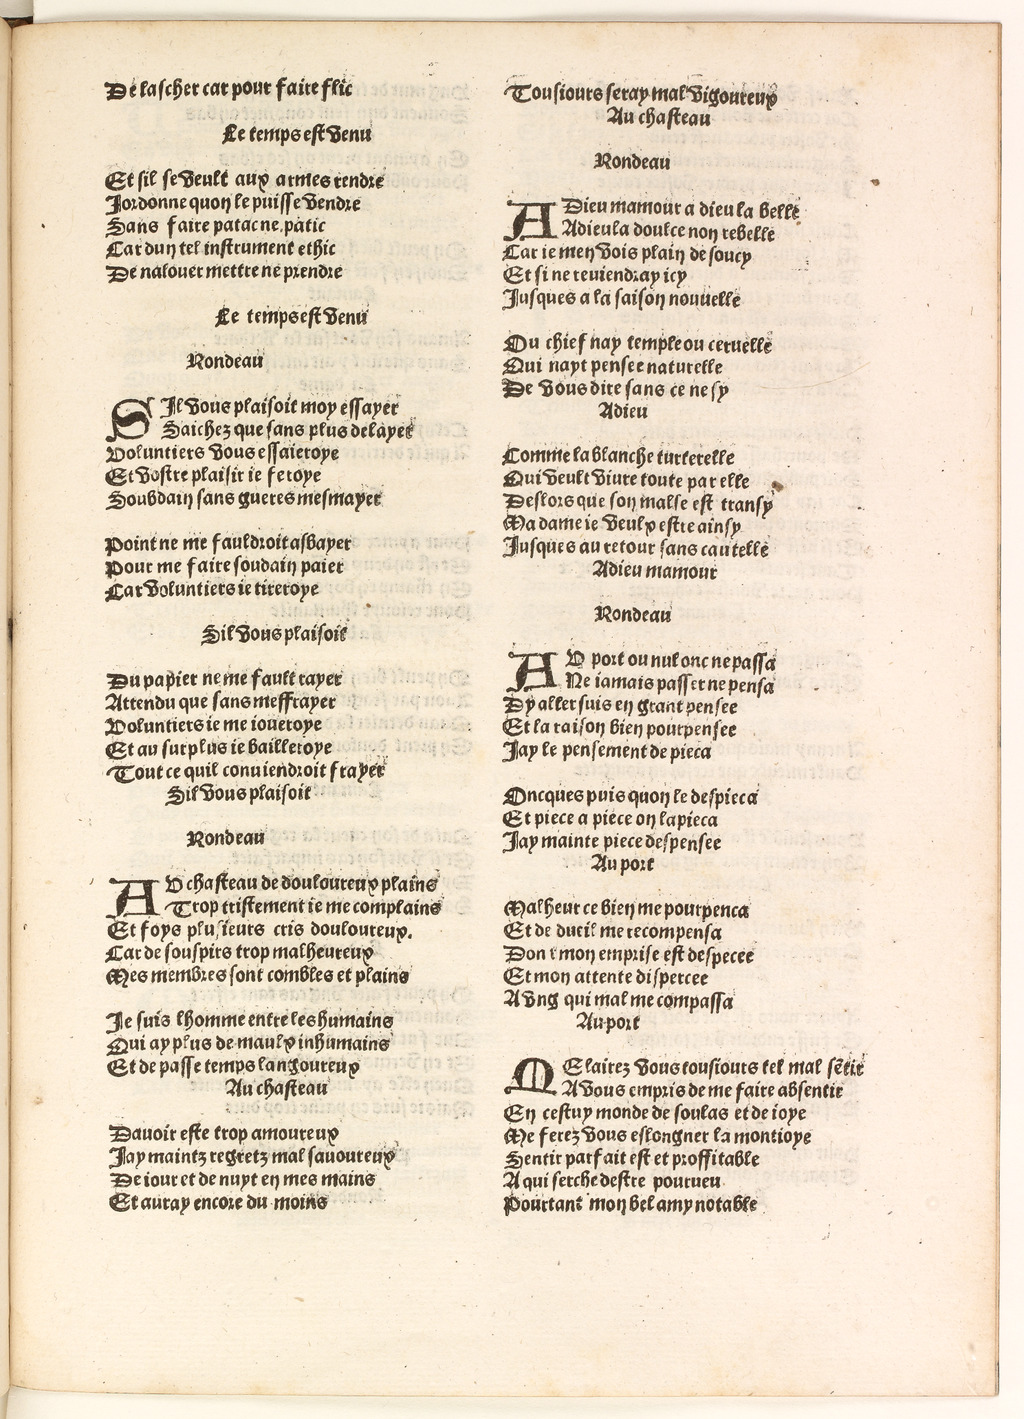 De lascher car pour faire flic
Le temps est venu
Et sil se veult aux armes rendre
Jordonne quon le puisse vendre
Sans faire patac ne patic
Car dun tel instrument ethic
De nalouer mettre ne prendre
Le temps est venu
Rondeau
SIl vous plaisoit moy essayer
Saichez que sans plus delayer
Voluntiers vous essaieroye
Et vostre plaisir ie feroye
Soubdain sans gueres mesmayer
Point ne me fauldroit asbayer
Pour me faire soudain paier
Car voluntiers ie tireroye
Sil vous plaisoit
Du papier ne me fault rayer
Attendu que sans meffrayer
Voluntiers ie me ioueroye
Et au surplus ie bailleroye
Tout ce quil conviendroit frayer
Sil vous plaisoit
Rondeau
AV chasteau de douloureux plains
Trop tristement ie me complains
Et foys plusieurs cris douloureux.
Car de souspirs trop malheureux
Mes membres sont combles et plains
Je suis lhomme entre les humains
Qui ay plus de maulx inhumains
Et de passe temps langoureux
Au chasteau
Davoir este trop amoureux
Jay maintz regretz mal savoureux
De iour et de nuyt en mes mains
Et auray encore du moins
Tousiours seray mal vigoureux
Au chasteau
Rondeau
ADieu mamour a dieu la belle
Adieu la doulce non rebelle
Car ie men vois plain de soucy
Et si ne reviendray icy
Jusques a la saison nouvelle
Ou chief nay temple ou cervelle
Qui nayt pensee naturelle
De vous dire sans ce ne sy
Adieu
Comme la blanche turterelle
Qui veult vivre toute par elle
Deslors que son malse est transy
Ma dame ie veulx estre ainsy
Jusques au retour sans cautelle
Adieu mamour
Rondeau
AV port ou nul onc ne passa
Ne iamais passer ne pensa
Dy aller suis en grant pensee
Et la raison bien pourpensee
Jay le pensement de pieca
Oncques puis quon le despieca
Et piece a piece on lapieca
Jay mainte piece despensee
Au port
Malheur ce bien me pourpenca
Et de dueil me recompensa
Dont mon emprise est despecee
Et mon attente dispercee
A vng qui mal me compassa
Au port
MElairez vous tousiours tel mal sētir
A vous empris de me faire absentir
En cestuy monde de soulas et de ioye
Me ferez vous eslongner la montioye
Sentir parfait est et proffitable
A qui serche destre pourveu
Pourtant mon bel amy notable